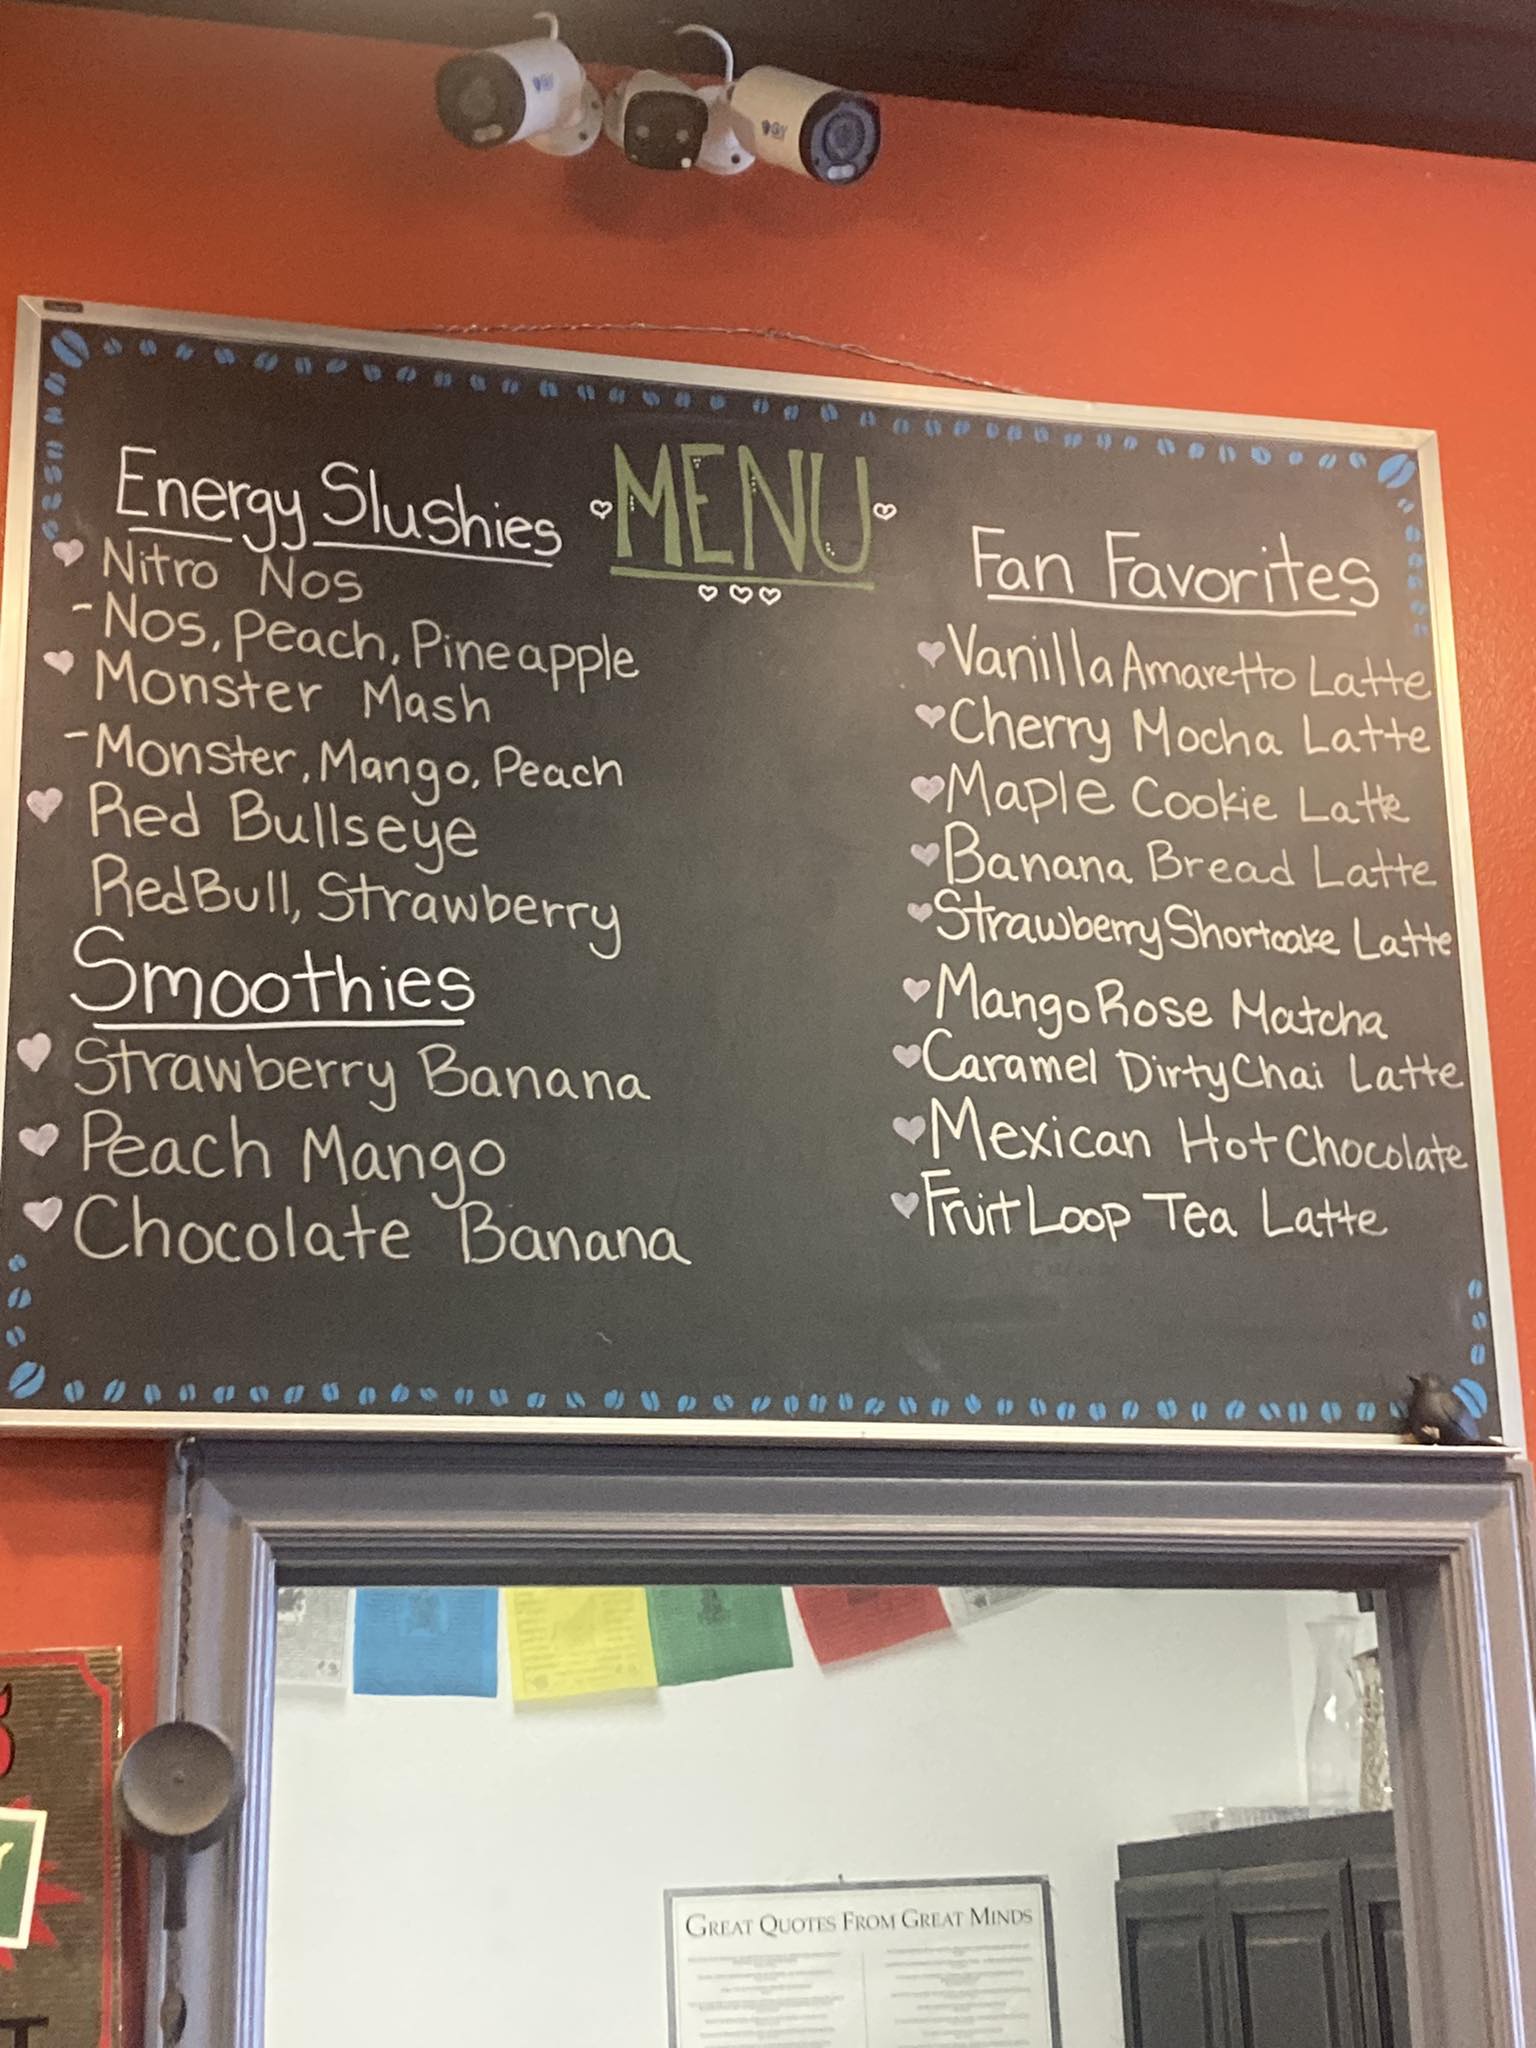 MENU
Energy Slushies
Nitro Nos
-Nos, Peach, Pineapple
Monster Mash
-Monster, Mango, Peach
Red Bullseye
RedBull, Strawberry
Smoothies
Strawberry Banana
Peach Mango
Chocolate Banana
Fan Favorites
Vanilla Amaretto Latte
Cherry Mocha Latte
Maple Cookie Latte
Banana Bread Latte
Strawberry Shortcake Latte
Mango Rose Matcha
Caramel Dirty Chai Latte
Mexican Hot Chocolate
Fruit Loop Tea Latte
GREAT QUOTES FROM GREAT MINDS